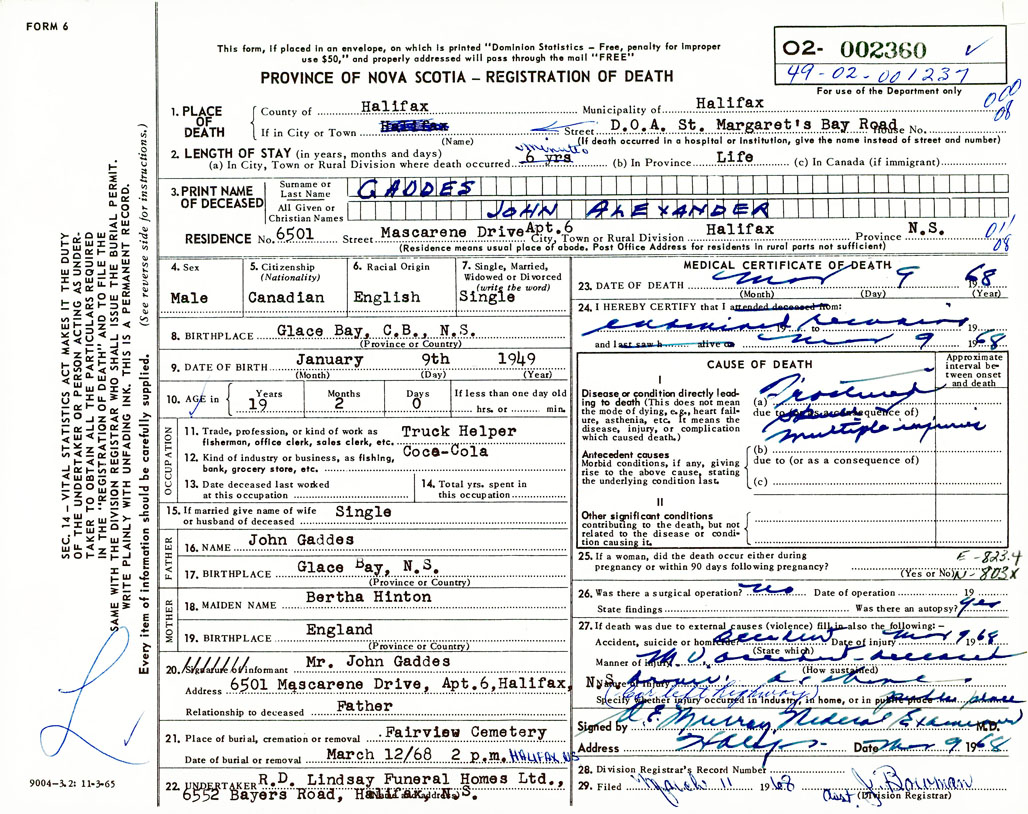 FORM 6
This form, if placed in an envelope, on which is printed "Dominion Statistics – Free, penalty for improper
use $50," and properly addressed will pass through the mail "FREE"
PROVINCE OF NOVA SCOTIA – REGISTRATION OF DEATH
02- 002360 ✓
49-02-001237
For use of the Department only
000
08
1. PLACE OF DEATH
County of Halifax Municipality of Halifax
If in City or Town Street D.O.A. St. Margaret's Bay Road House No.
(Name) (If death occurred in a hospital or institution, give the name instead of street and number)
2. LENGTH OF STAY (in years, months and days)
(a) In City, Town or Rural Division where death occurred minutes 6 yrs (b) In Province Life (c) In Canada (if immigrant)
3. PRINT NAME OF DECEASED
Surname or Last Name GADDES
All Given or Christian Names JOHN ALEXANDER
RESIDENCE No. 6501 Street Mascarene Drive Apt.6 City, Town or Rural Division Halifax Province N.S.
(Residence means usual place of abode. Post Office Address for residents in rural parts not sufficient)
01
08
4. Sex
Male
5. Citizenship (Nationality)
Canadian
6. Racial Origin
English
7. Single, Married, Widowed or Divorced (write the word)
Single
8. BIRTHPLACE Glace Bay, C.B., N.S.
(Province or Country)
9. DATE OF BIRTH January 9th 1949
(Month) (Day) (Year)
10. AGE in Years 19 Months 2 Days 0 If less than one day old
hrs. or min.
OCCUPATION
11. Trade, profession, or kind of work as fisherman, office clerk, sales clerk, etc. Truck Helper
12. Kind of industry or business, as fishing, bank, grocery store, etc. Coca-Cola
13. Date deceased last worked at this occupation
14. Total yrs. spent in this occupation
15. If married give name of wife or husband of deceased Single
FATHER
16. NAME John Gaddes
17. BIRTHPLACE Glace Bay, N.S.
(Province or Country)
MOTHER
18. MAIDEN NAME Bertha Hinton
19. BIRTHPLACE England
(Province or Country)
20. Signature of informant Mr. John Gaddes
Address 6501 Mascarene Drive, Apt.6, Halifax, N.S.
Relationship to deceased Father
21. Place of burial, cremation or removal Fairview Cemetery
Date of burial or removal March 12/68 2 p.m. HALIFAX NS
22. UNDERTAKER R.D. Lindsay Funeral Homes Ltd.,
6552 Bayers Road, Halifax, N.S.
MEDICAL CERTIFICATE OF DEATH
23. DATE OF DEATH Mar 9 1968
(Month) (Day) (Year)
24. I HEREBY CERTIFY that I attended deceased from:
examined 19 to 19
and last saw h alive on Mar 9 1968
CAUSE OF DEATH
Approximate interval between onset and death
I
Disease or condition directly leading to death (This does not mean the mode of dying, e.g., heart failure, asthenia, etc. it means the disease, injury, or complication which caused death.)
(a) Fractured
due to (or as a consequence of)
multiple injuries
Antecedent causes
Morbid conditions, if any, giving rise to the above cause, stating the underlying condition last.
(b)
due to (or as a consequence of)
(c)
II
Other significant conditions
contributing to the death, but not related to the disease or condition causing it.
25. If a woman, did the death occur either during pregnancy or within 90 days following pregnancy?
(Yes or No)
E-823.4
N-803x
26. Was there a surgical operation? No Date of operation 19
State findings Was there an autopsy? Yes
27. If death was due to external causes (violence) fill in also the following:–
Accident, suicide or homicide accident Date of injury Mar 9 1968
(State which)
Manner of injury M V accident - deceased
(How sustained)
Nature of injury
(Car left highway)
Specify whether injury occurred in industry, in home, or in public place public place
Signed by Murray Medical Examiner M.D.
Address Halifax Date Mar 9 1968
28. Division Registrar's Record Number
29. Filed March 11 1968 Asst. J. Bowman
(Division Registrar)
SEC. 14 – VITAL STATISTICS ACT MAKES IT THE DUTY
OF THE UNDERTAKER OR PERSON ACTING AS UNDER-
TAKER TO OBTAIN ALL THE PARTICULARS REQUIRED
IN THE "REGISTRATION OF DEATH" AND TO FILE THE
SAME WITH THE DIVISION REGISTRAR WHO SHALL ISSUE THE BURIAL PERMIT.
WRITE PLAINLY WITH UNFADING INK. THIS IS A PERMANENT RECORD.
Every item of information should be carefully supplied. (See reverse side for instructions.)
9004-3.2: 11-3-65